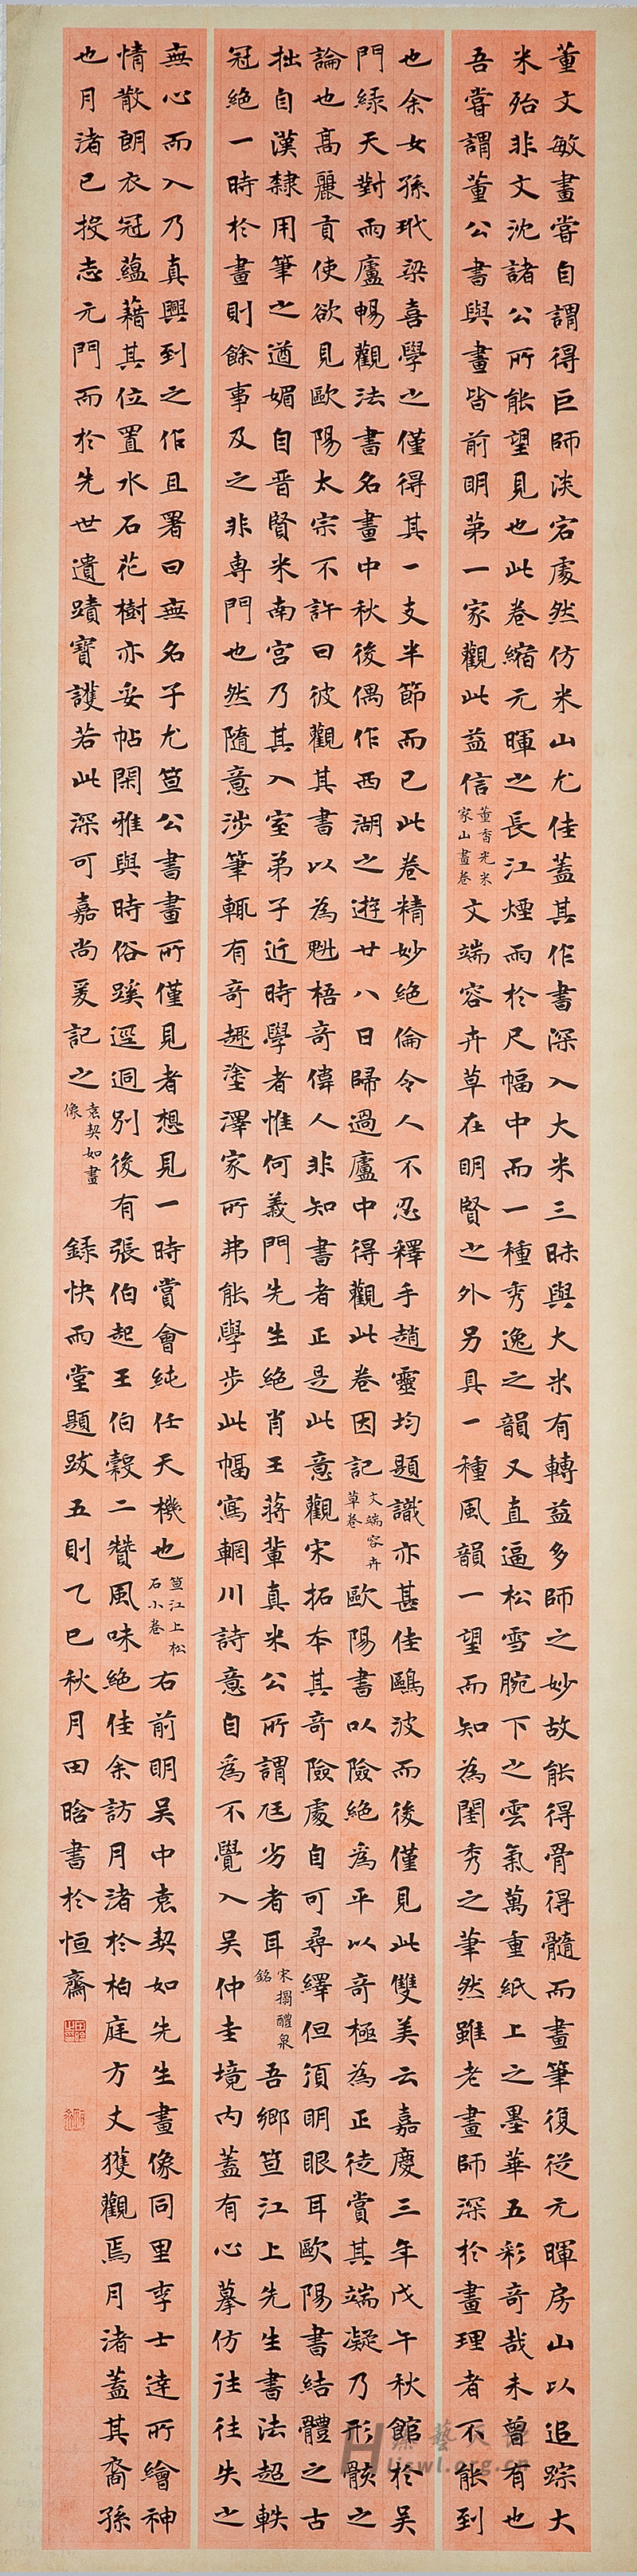 董文敏畫嘗自謂得巨師淡宕處然仿米山尤佳蓋其作書深入大米三昧與大米有轉益多師之妙故能得骨得髓而畫筆復從元暉房山以追踪大
米殆非文沈諸公所能望見也此卷縮元暉之長江煙雨於尺幅中而一種秀逸之韻又直逼松雪腕下之雲氣萬重紙上之墨華五彩奇哉未曾有也
吾嘗謂董公書與畫皆前明第一家觀此益信董香光米家山畫卷文端容卉草在明賢之外另具一種風韻一望而知為閨秀之筆然雖老畫師深於畫理者不能到
也余女孫玳梁喜學之僅得其一支半節而已此卷精妙絕倫令人不忍釋手趙靈均題識亦甚佳鷗波而後僅見此雙美云嘉慶三年戊午秋館於吳
門綠天對雨廬暢觀法書名畫中秋後偶作西湖之遊廿八日歸過廬中得觀此卷因記文端容卉草卷歐陽書以險絕為平以奇極為正徒賞其端凝乃形骸之
論也高麗貢使欲見歐陽太宗不許曰彼觀其書以為魁梧奇偉人非知書者正是此意觀宋拓本其奇險處自可尋繹但須明眼耳歐陽書結體之古
拙自漢隸用筆之遒媚自晉賢米南宮乃其入室弟子近時學者惟何義門先生絕肖王蔣輩真米公所謂尫劣者耳宋搨醴泉銘吾鄉笪江上先生書法超軼
冠絕一時於畫則餘事及之非專門也然隨意涉筆輒有奇趣塗澤家所弗能學步此幅寫輞川詩意自為不覺入吳仲圭境內蓋有心摹仿往往失之
無心而入乃真興到之作且署曰無名子尤笪公書畫所僅見者想見一時賞會純任天機也笪江上松石小卷右前明吳中袁契如先生畫像同里李士達所繪神
情散朗衣冠蘊藉其位置水石花樹亦妥帖閑雅與時俗蹊逕迥別後有張伯起王伯穀二贊風味絕佳余訪月渚於柏庭方丈獲觀焉月渚蓋其裔孫
也月渚已投志元門而於先世遺蹟寶護若此深可嘉尚爰記之袁契如畫像錄快雨堂題跋五則乙巳秋月田晗書於恒齋